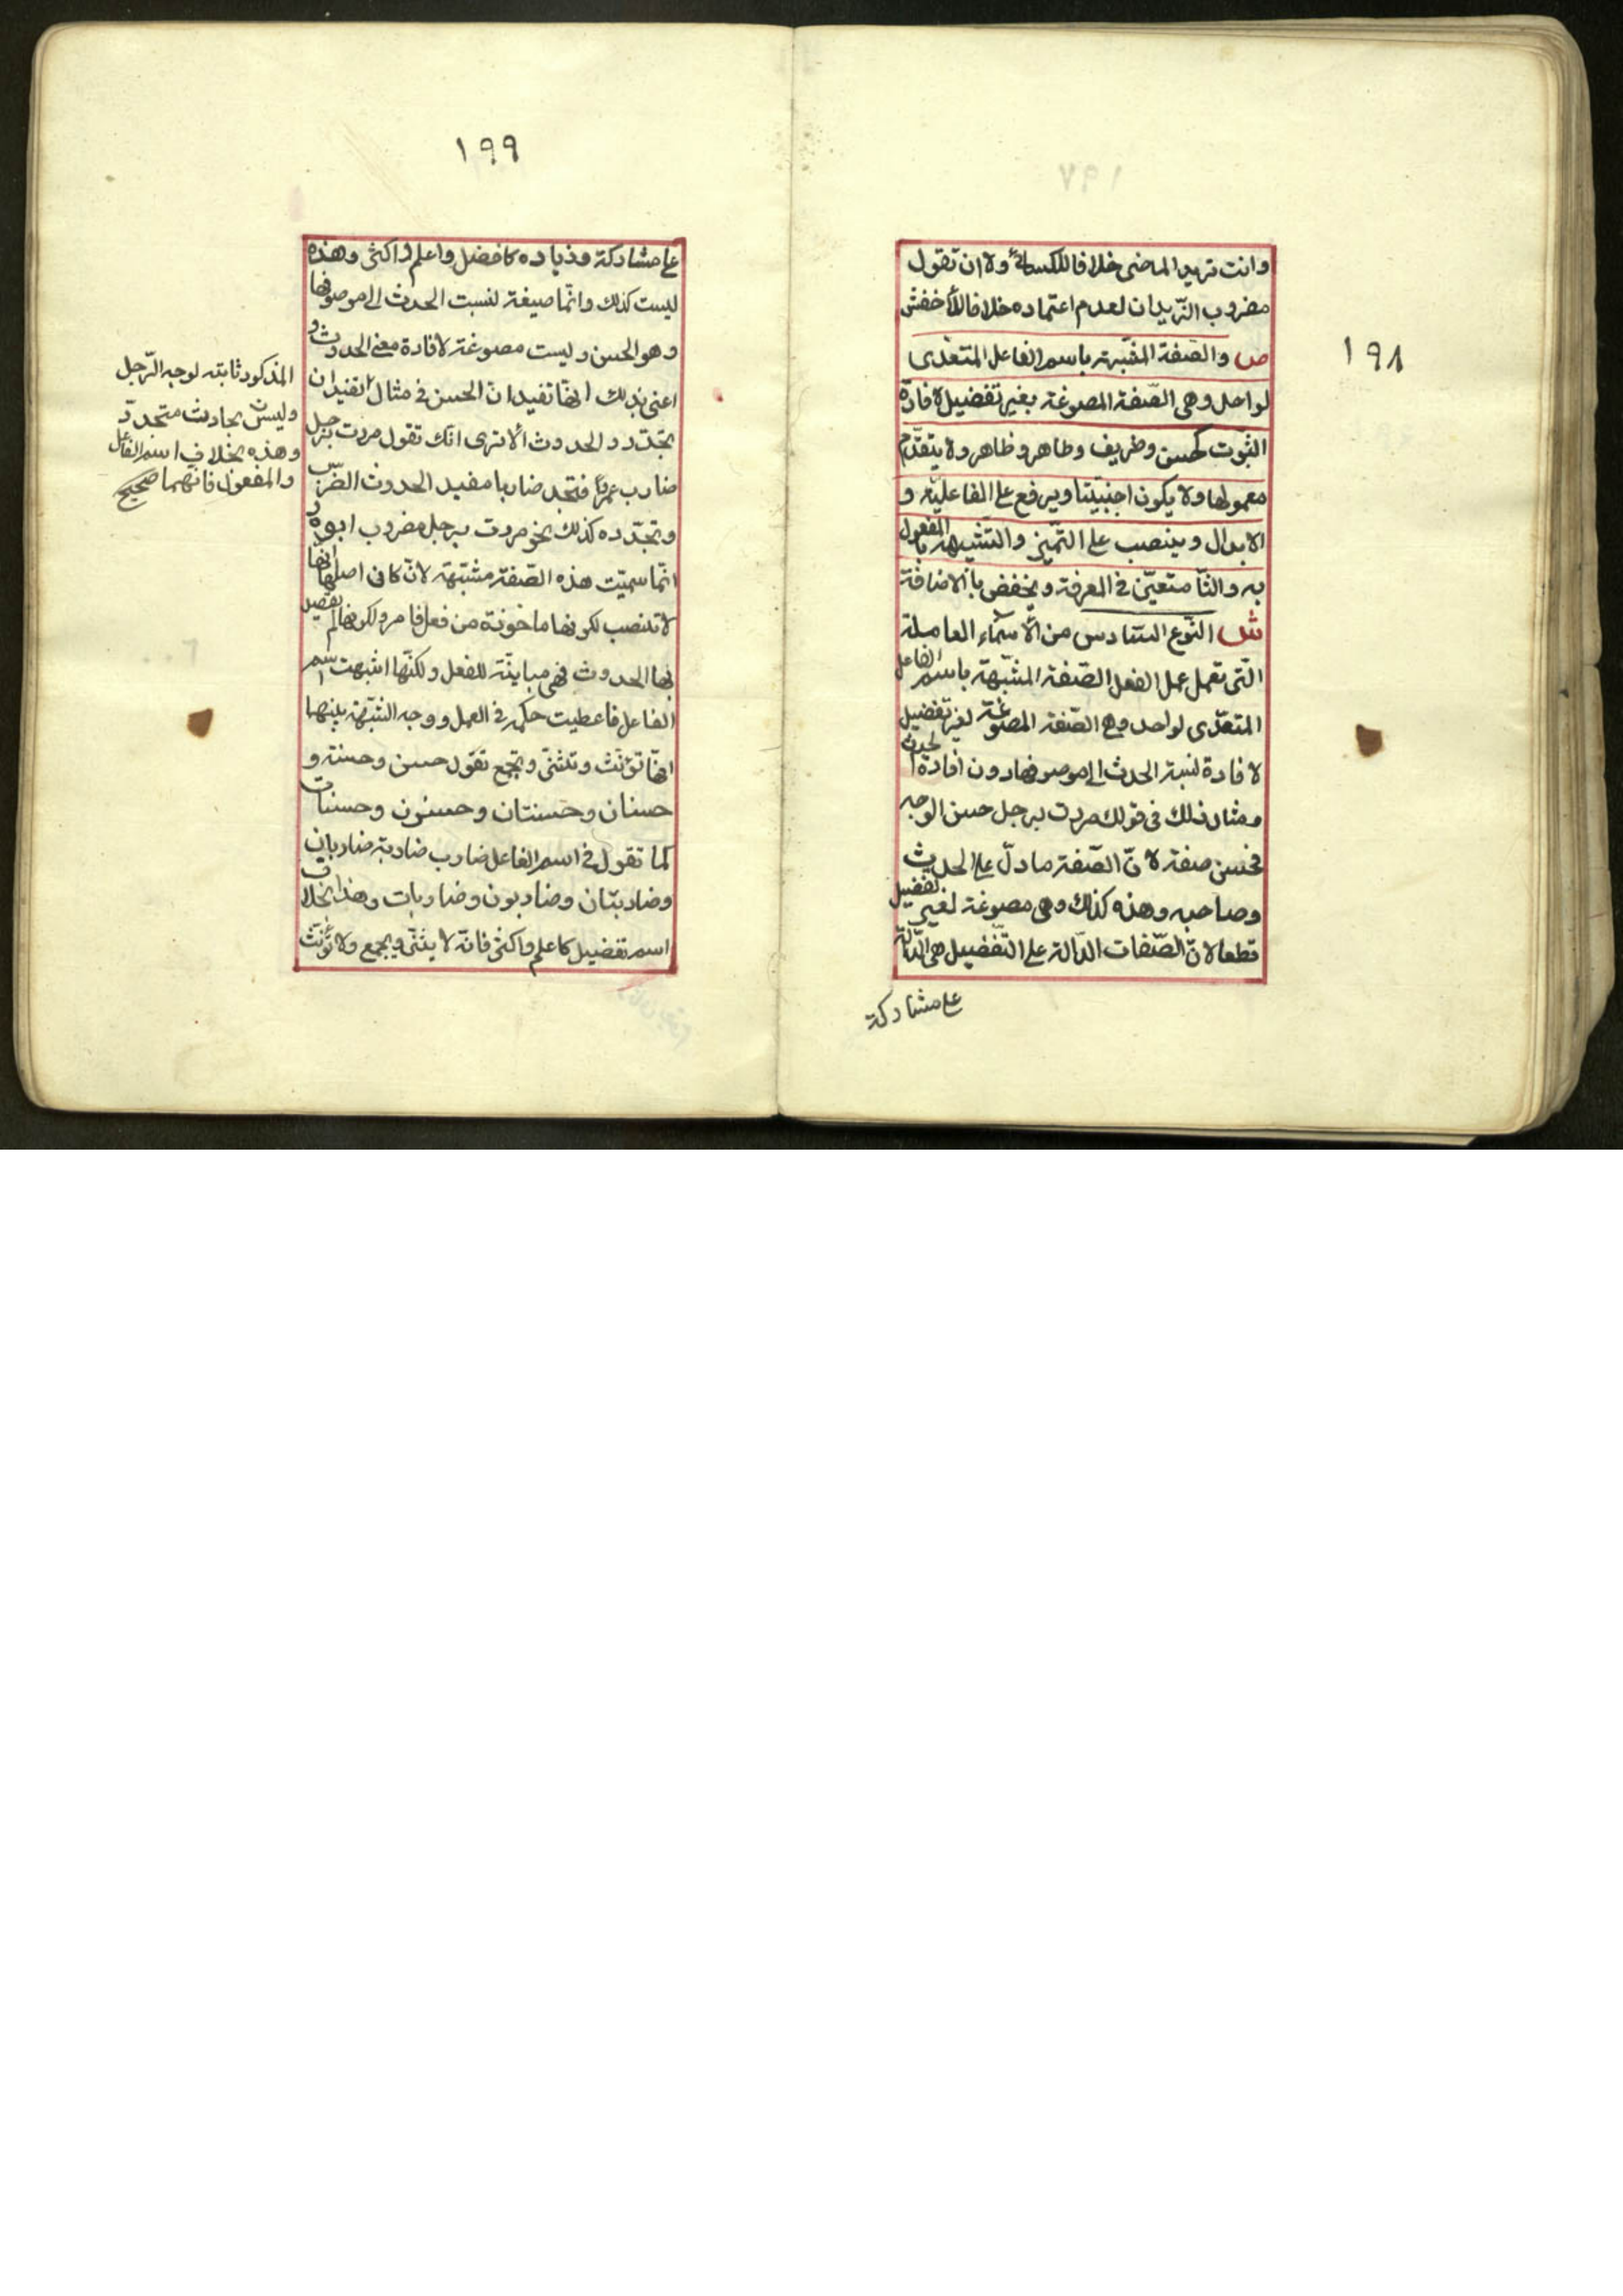 ١٩٨
وانت تريد الماضى خلافا للكسائى ولا ان تقول
مضروب الزّيدان لعدم اعتماده خلافا للأخفش
ص والصفة المشبّهة باسم الفاعل المتعدى
لواحد وهى الصّفة المصوغة بغير تفضيل لافادة
الثبوت كحسن وظريف وطاهر وظاهر ولا يتقدّم
معمولها ولا يكون اجنبيّا ويرفع على الفاعليّة و
الابدال وينصب على التّميز والتشبيه بالمفعول
به والثا متعيّن فى المعرفة ويخفض بالاضافة
ش النّوع السّادس من الأسماء العاملة
الّتى تعمل عمل الفعل الصّفة المشبّهة باسم الفاعل
المتعدّى لواحد وهى الصّفة المصوغة لغير تفضيل
لافادة نسبة الحدث الى موصوفها دون افادة الحدث
ومثال ذلك فى قولك مررت برجل حسن الوجه
فحسن صفة لانّ الصّفة ما دلّ على الحدث
وصاحبه وهذه كذلك وهى مصوغة لغير تفضيل
قطعا لانّ الصّفات الدّالة على التّفضيل هى الدّالة
على مشاركة
١٩٩
على مشاركة وزياده كافضل واعلم واكثى وهذه
ليست كذلك وانّما صيغة لنسبت الحدث الى موصوفها
وهو الحسن وليست مصوغة لافادة معنى الحدوث و
اعنى بذلك انّها تفيد انّ الحسن فى مثال تفيد ان
تجدّد والحدوث ألا ترى انّك تقول مررت برجل
ضارب عمرًا فتجد ضاربا مفيد الحدوث الضّرب
وتجدّده كذلك نحو مررت برجل مضروب ابوه و
انّما سميّت هذه الصّفة مشبّهة لانّ كان اصلها انّها
لا تنصب لكونها ماخوذة من فعل قامر ولكونها لم يقصد
بها الحدوث فهى مباينة للفعل ولكنّها اشبهت اسم
الفاعل فاعطيت حكمه فى العمل ووجه الشّبهة بينهما
انّها تؤنّث وتثنّى وتجمع تقول حسن وحسنة و
حسنان وحسنتان وحسنون وحسنات
كما تقول فى اسم الفاعل ضارب ضاربة ضاربان
وضاربتان وضاربون وضاربات وهذا بخلاف
اسم تفضيل كاعلم واكثى فانّه لا يثنّى ويجمع ولا تؤنّث
المذكور ثابته لوجه الرّجل
وليس بحادث متجدّد
وهذه بخلاف اسم الفاعل
والمفعول فانّهما صحيح